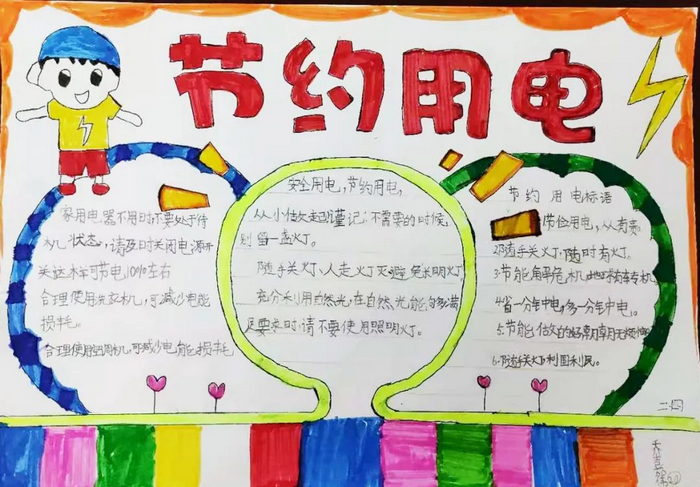 节约用电
家用电器不用时不要处于待
机状态,请及时关闭电源开
关这样可节电10%左右
合理使用洗衣机,可减少电能
损耗。
合理使用空调机,可减少电能损耗
安全用电,节约用电,
从小做起谨记,不需要的时候,
别留一盏灯。
随手关灯、人走灯灭避免长明灯
充分利用自然光,在自然光能够满
足要求时,请不要使用照明灯。
节约用电标语
2.随手关灯,随时有灯。
3.节能解危机,地球有转机
4省一分钟电,多一分钟电。
5.节能做的好
6.随手关灯利国利民。
二.四